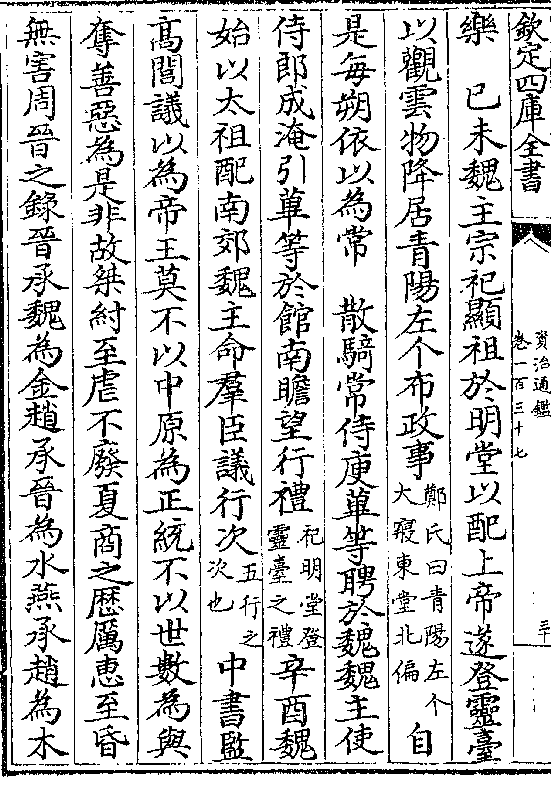 欽定四庫全書
資治通鑑
卷一百三十七
三十
樂　已未魏主宗祀顯祖於明堂以配上帝遂登靈臺
以觀雲物降居青陽左个布政事鄭氏曰青陽左个大寢東堂北偏自
是每朔依以為常　散騎常侍庾蓽等聘於魏魏主使
侍郎成淹引蓽等於館南瞻望行禮祀明堂登靈臺之禮辛酉魏
始以太祖配南郊魏主命羣臣議行次五行之次也中書監
高閭議以為帝王莫不以中原為正統不以世數為與
奪善惡為是非故桀紂至虐不廢夏商之歷厲惠至昏
無害周晉之錄晉承魏為金趙承晉為水燕承趙為木